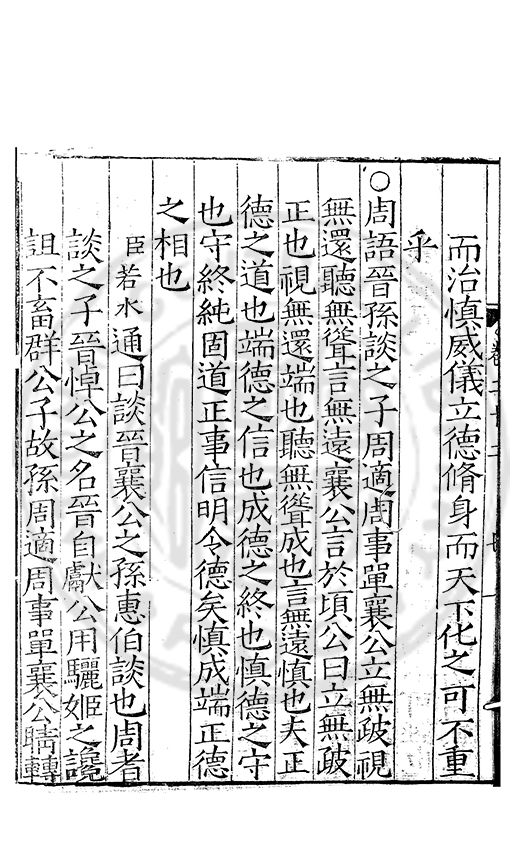 而治慎威儀立德脩身而天下化之可不重
乎
○周語晉孫談之子周適周事單襄公立無跛視
無還聽無聳言無遠襄公言於頃公曰立無跛
正也視無還端也聽無聳成也言無遠慎也夫正
德之道也端德之信也成德之終也慎德之守
也守終純固道正事信明令德矣慎成端正德
之相也
臣若水通曰談晉襄公之孫惠伯談也周者
談之子晉悼公之名晉自獻公用驪姬之讒
詛不畜群公子故孫周適周事單襄公睛轉
卷二十二